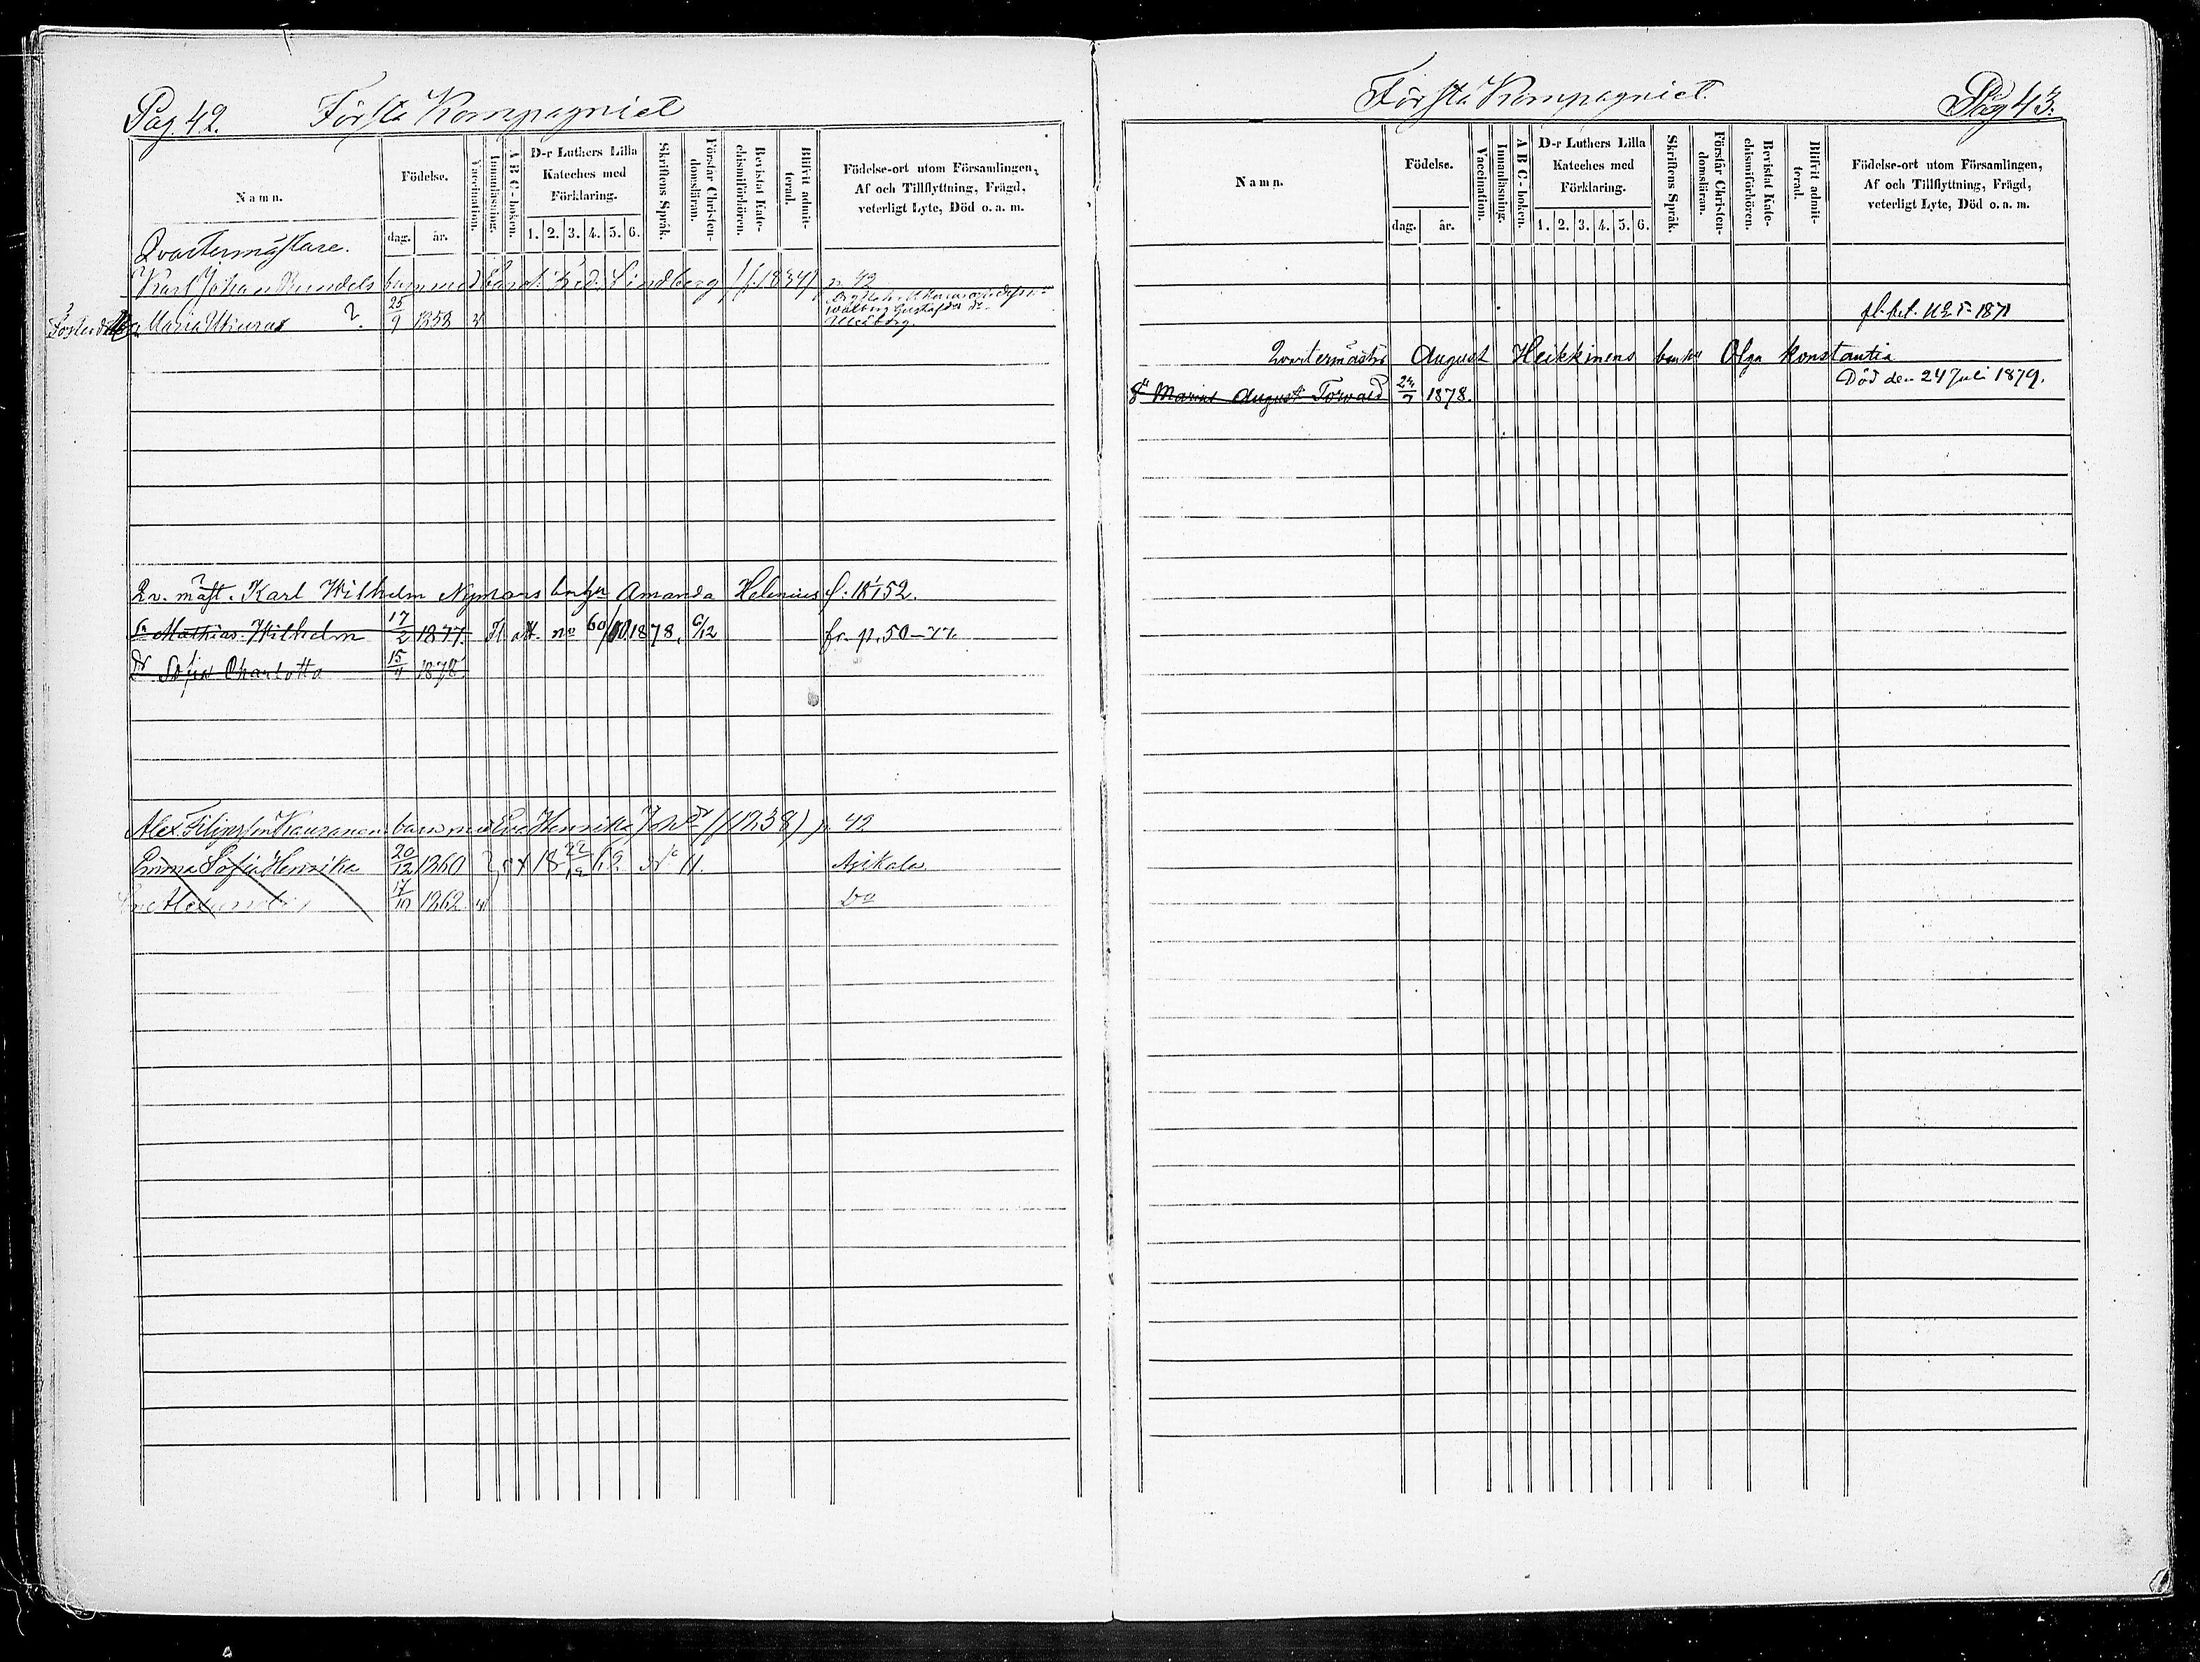 Pag. 42. Första Kompagniet
Namn. Födelse. dag. år. Vaccination. Innanläsning. A B C-boken. D-r Luthers Lilla Kateches med Förklaring. 1. 2. 3. 4. 5. 6. Skriftens Språk. Förstår Christendomsläran. Bevistat Katechismiförhören. Blifvit admitterad. Födelse-ort utom Församlingen, Af och Tillflyttning, Frägd, veterligt Lyte, Död o. a. m.
Qvartermästare.
Karl Johan barn med Lindberg (f. 1834) p. 42
Maria 25/9 1853
Uleåborg.
Qv. mäst. Karl Wilhelm Nymans barn Amanda Helenius f. 18 52.
Mathias Wilhelm 17/2 1877. Fl. att. no 60/ 1878, 6/12 fr. p. 50-77.
Dr Sofia Charlotta 15/9 1878
Alex. barn med Eva Henrika (f 1838) p. 42
Emma Sofia Henrika 20/12 1860 18 22/12 69 No 11. Asikala
17/10 1862 Do
Första Kompagniet. Pag 43.
Namn. Födelse. dag. år. Vaccination. Innanläsning. A B C-boken. D-r Luthers Lilla Kateches med Förklaring. 1. 2. 3. 4. 5. 6. Skriftens Språk. Förstår Christendomsläran. Bevistat Katechismiförhören. Blifvit admitterad. Födelse-ort utom Församlingen, Af och Tillflyttning, Frägd, veterligt Lyte, Död o. a. m.
fl. bet. No 5 - 1871
Qvartermästre August Heikkinens Olga Konstantia
Död den 24 Juli 1879.
August Torvald 1878.